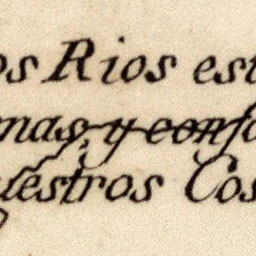 os Rios est
mas, y confo
uestros Cos